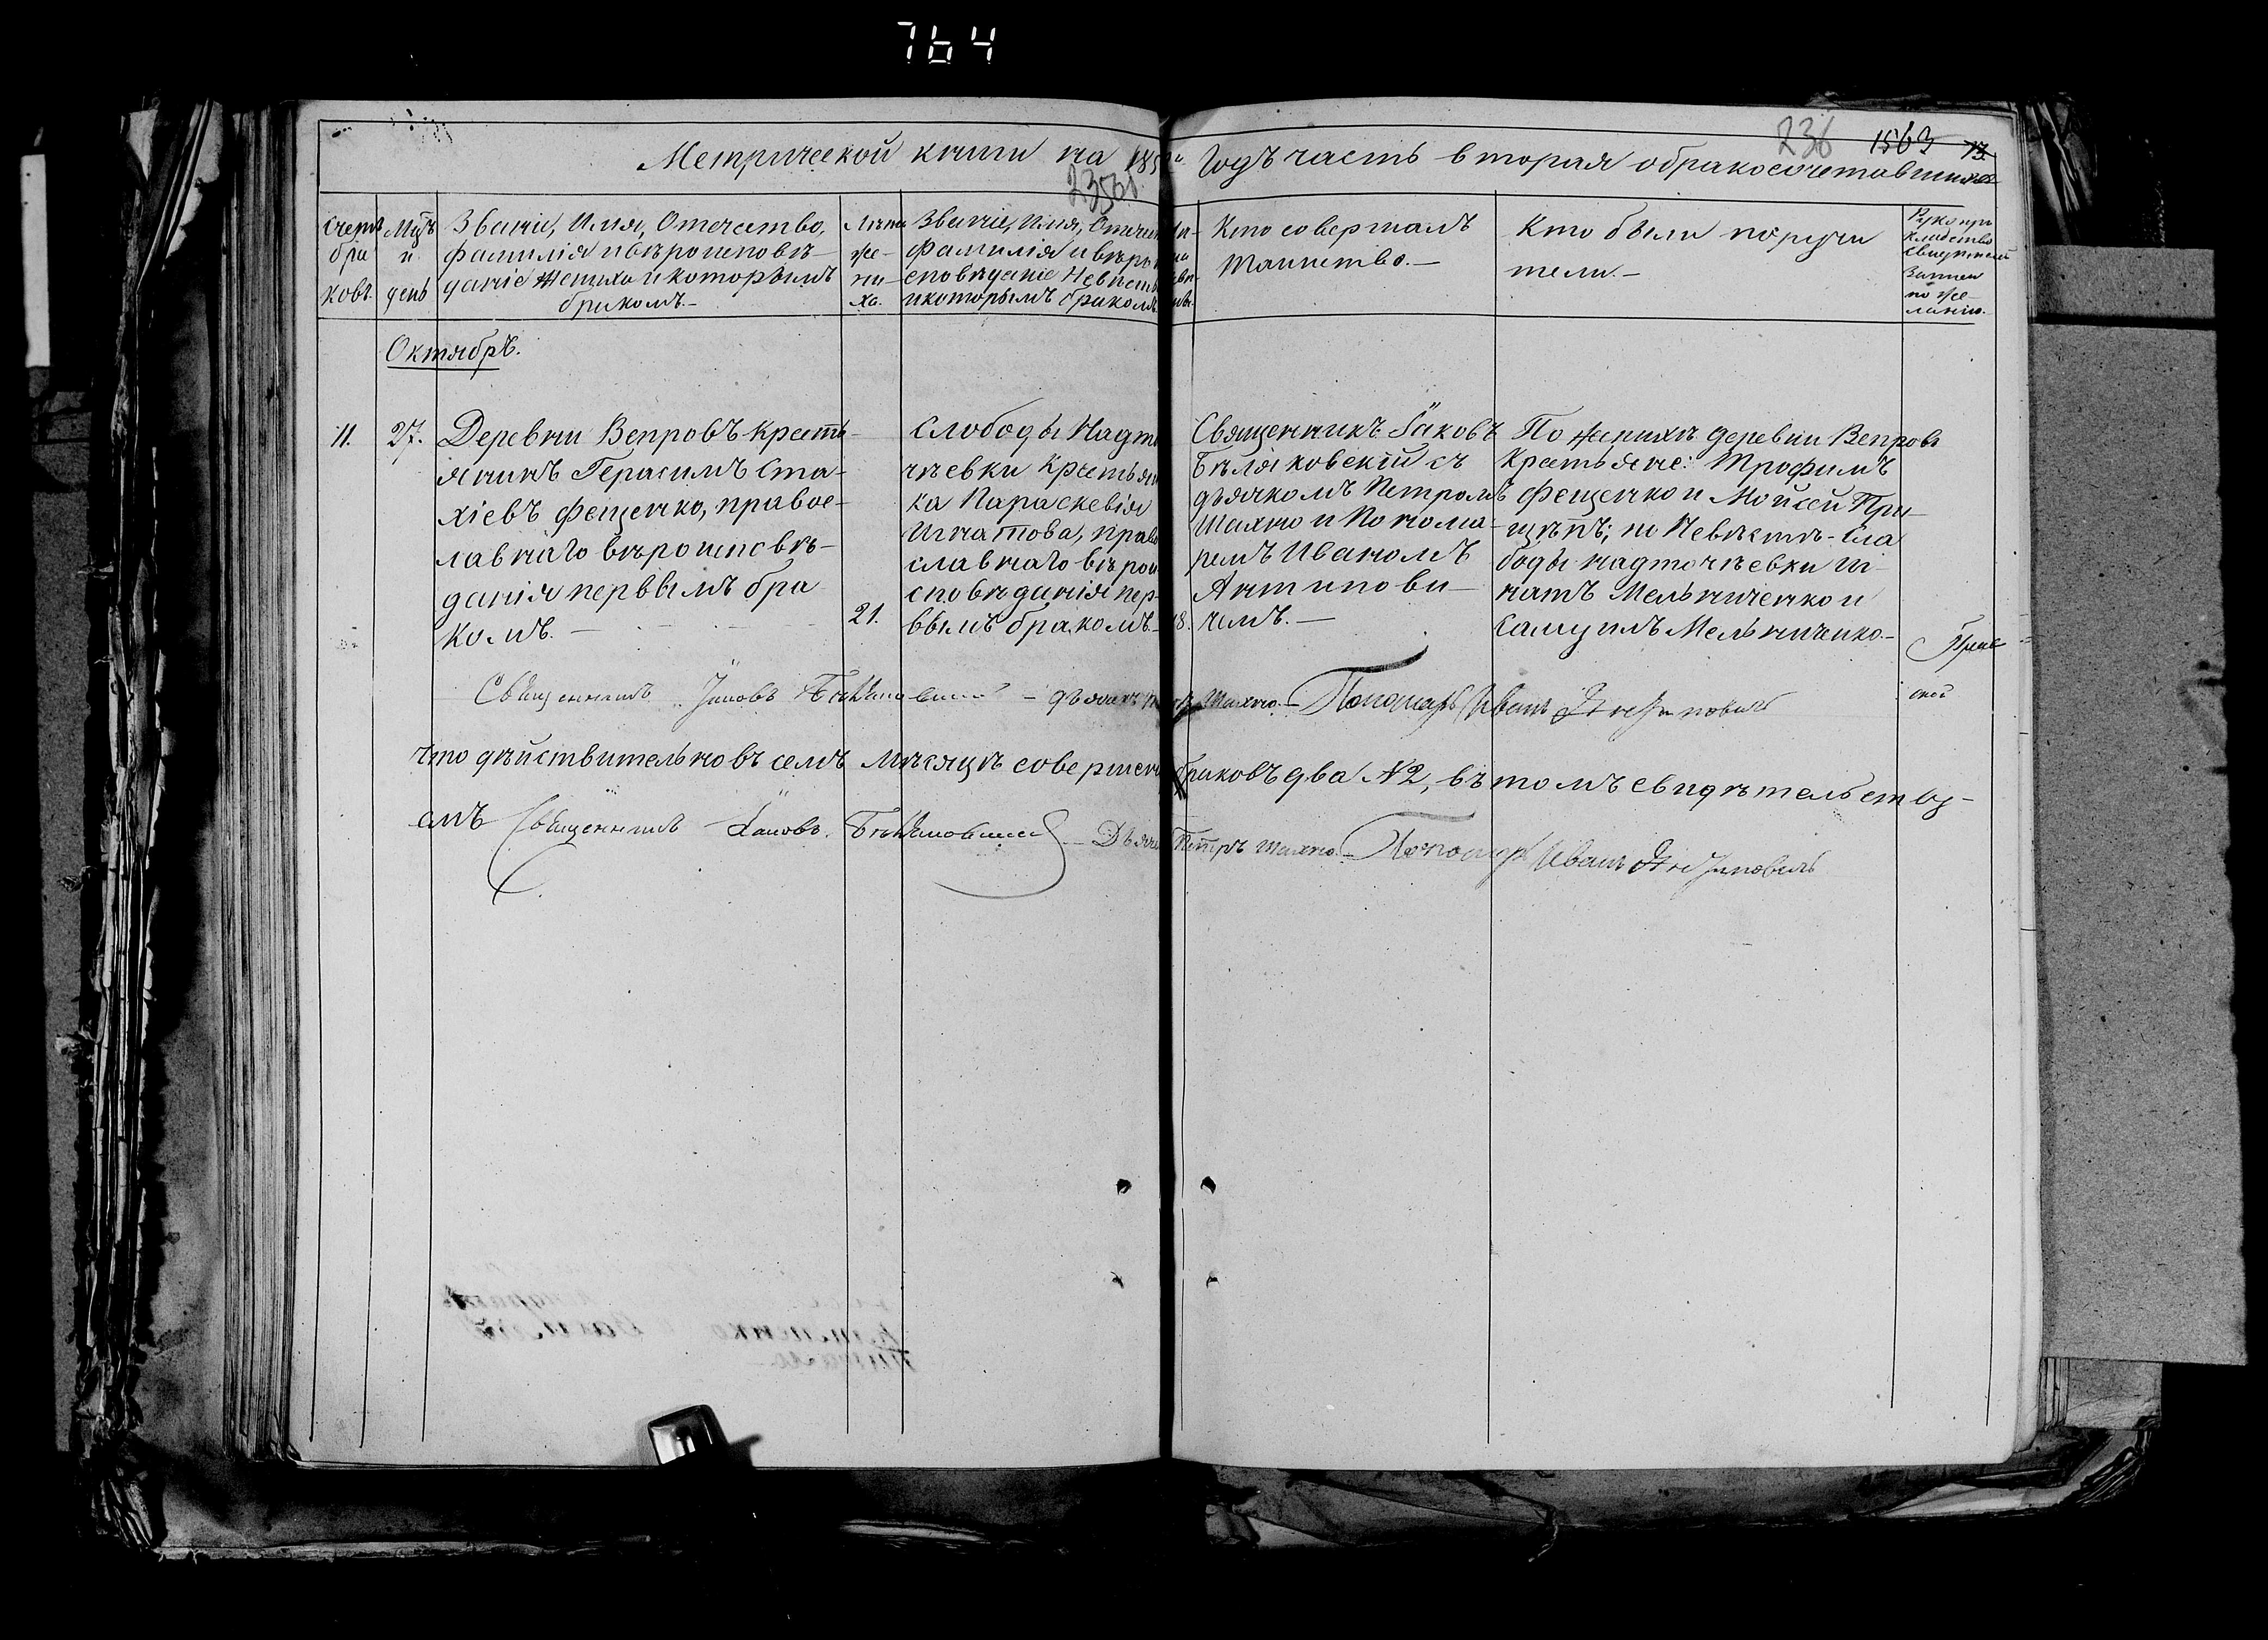 764
236 1563 13.
Метрической книги на 185 Годъ часть вторая обракосочетавшихся
235об.
Счетъ браковъ.
Мцъ и день
Званіе, Имя, Отечество,
фамилія ивѣроисповѣ-
даніе Жениха икоторымъ
бракомъ.-
Лѣта
же-
ни-
ха.
Званіе, Имя, Отечест
фамилія ивѣро
сповѣданіе Невѣсты
икоторымъ бракомъ.
Кто совершалъ
таинство.-
Кто были поручи
тели.-
Рукопри
кладство
свидѣтелей
записи
по же-
ланію.
Октябрь.
11.
27.
Деревни Вепровъ крестъ-
янинъ Герасимъ Ста-
хіевъ Фещенко, правос-
лавнаго вѣроисповѣ-
данія первымъ бра
комъ.-
21.
Слободы Надто
чѣевки крестьян
ка Параскевія
Игнатова, право
славнаго вѣрои
сповѣданія пер-
вымъ бракомъ.-
18.
Священникъ Іаковъ
Бѣляковскій съ
дьячкомъ Петромъ
Махно и Понома-
ремъ Иваномъ
Антипови-
чемъ.-
По женихѣ деревни Вепровъ
Крестьяне: Трофимъ
Фещенко и Мойсей При-
щѣпъ; по Невѣстѣ-Сла
боды надточѣевки Иг-
натъ Мельниченко и
Самуилъ Мельниченко.-
Священникъ Іаковъ - дьячекъ Махно.- Пономарь Иванъ Антиповичъ
что дѣйствительно въ семъ мѣсяцѣ совершен браковъ два №2, въ томъ свидѣтельству-
емъ Священникъ Іаковъ Дьяче Петръ Махно.- Пономарь Иванъ Антиповичъ